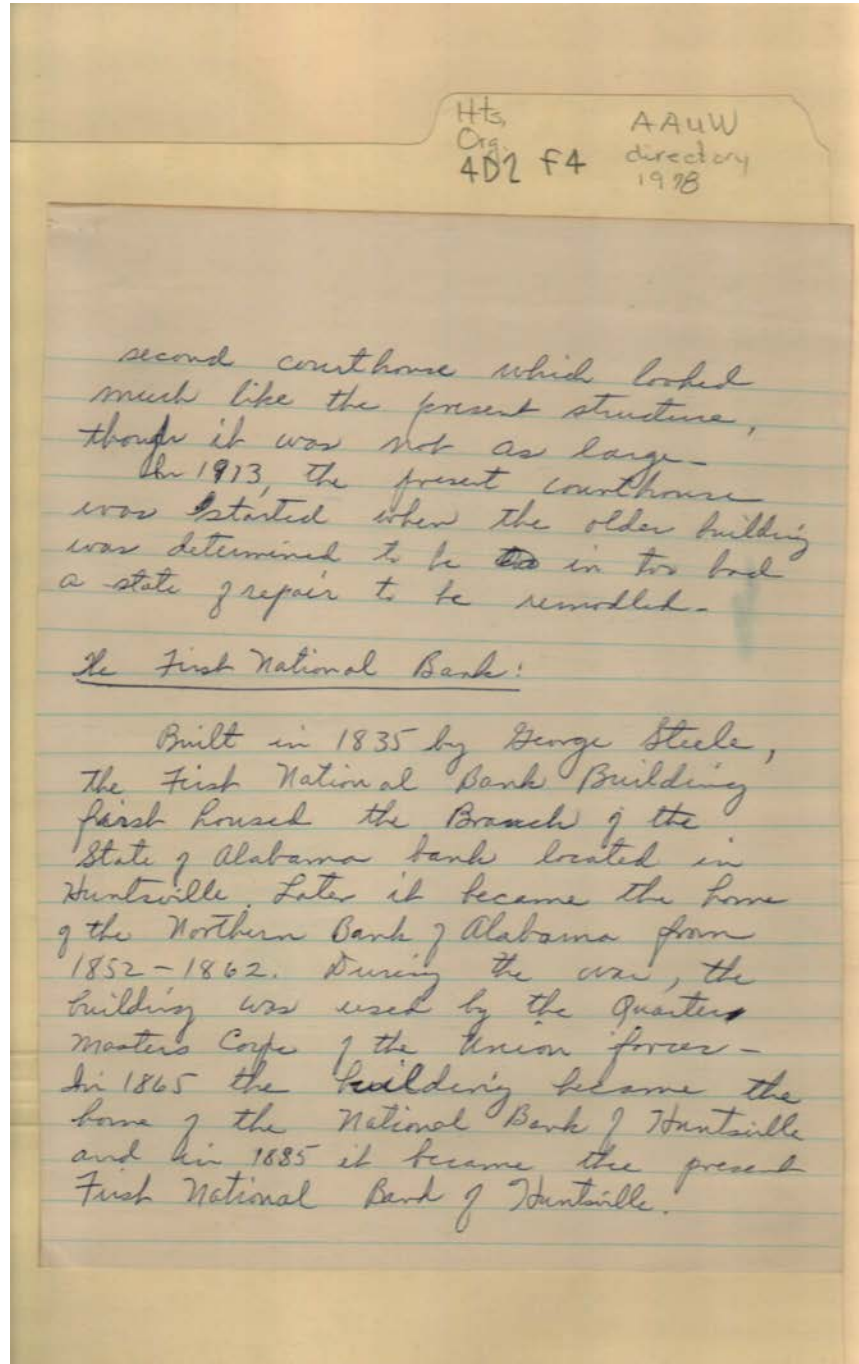 Hts,
Org.
4D2 F4
AAUW
directory
1978
second courthouse which looked
much like the present structure,
though it was not as large.
In 1913, the present courthouse
was started when the older building
was determined to be in too bad
a state of repair to be remodled.
The First National Bank:
Built in 1835 by George Steele,
the First National Bank Building
first housed the Branch of the
State of Alabama bank located in
Huntsville. Later it became the home
of the Northern Bank of Alabama from
1852-1862. During the war, the
building was used by the Quarter
Masters Corps of the Union forces-
In 1865 the building became the
home of the National Bank of Huntsville
and in 1885 it became the present
First National Bank of Huntsville.